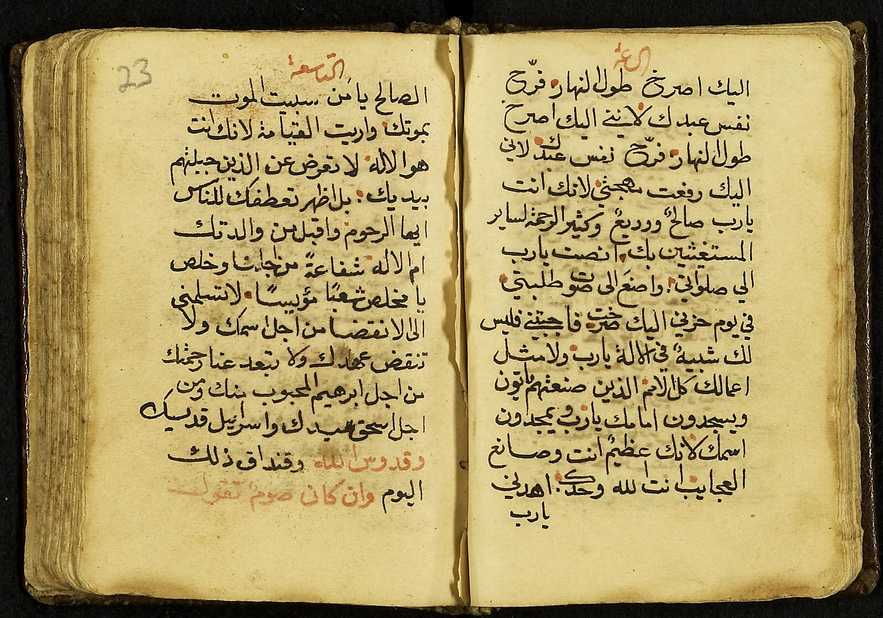 الساعة
اليك اصرخ طول النهار فرّح
نفس عبدك لانني اليك اصرح
طول النهار فرّح نفس عبدك لاني
اليك رفعت مهجتي لانك انت
يارب صالحٌ ووديعٌ وكثير الرحمة لساير
المستغيثين بك انصت يارب
الي صلواتي واصغَ الى صوت طلبتي
في يوم حزني اليك صرخت فاجبتني فليس
لك شبيهٌ في الالهة يارب ولا مثل
اعمالك كل الامم الذين صنعتهم ياتون
ويسجدون امامك يارب ويمجدون
اسمك لانك عظيمٌ انت وصانع
العجايب انت الله وحدك اهدني
يارب
23
التاسعة
الصالح يا من سبيت الموت
بموتك واريت القيامة لانك انت
هو الاله لا تعرض عن الذين جبلتهم
بيديك بل اظهر تعطفك للناس
ايها الرحوم واقبل من والدتك
ام الاله شفاعةً من جهتنا وخلص
يا مخلص شعبًا مؤيسًا لا تسلمنى
الى الانقضا من اجل اسمك ولا
تنقض عهدك ولا تبعد عنا رحمتك
من اجل ابرهيم المحبوب منك ومن
اجل اسحق عبدك واسرايل قديسك
وقدوس الله وقنداق ذلك
اليوم وان كان صوم تقول